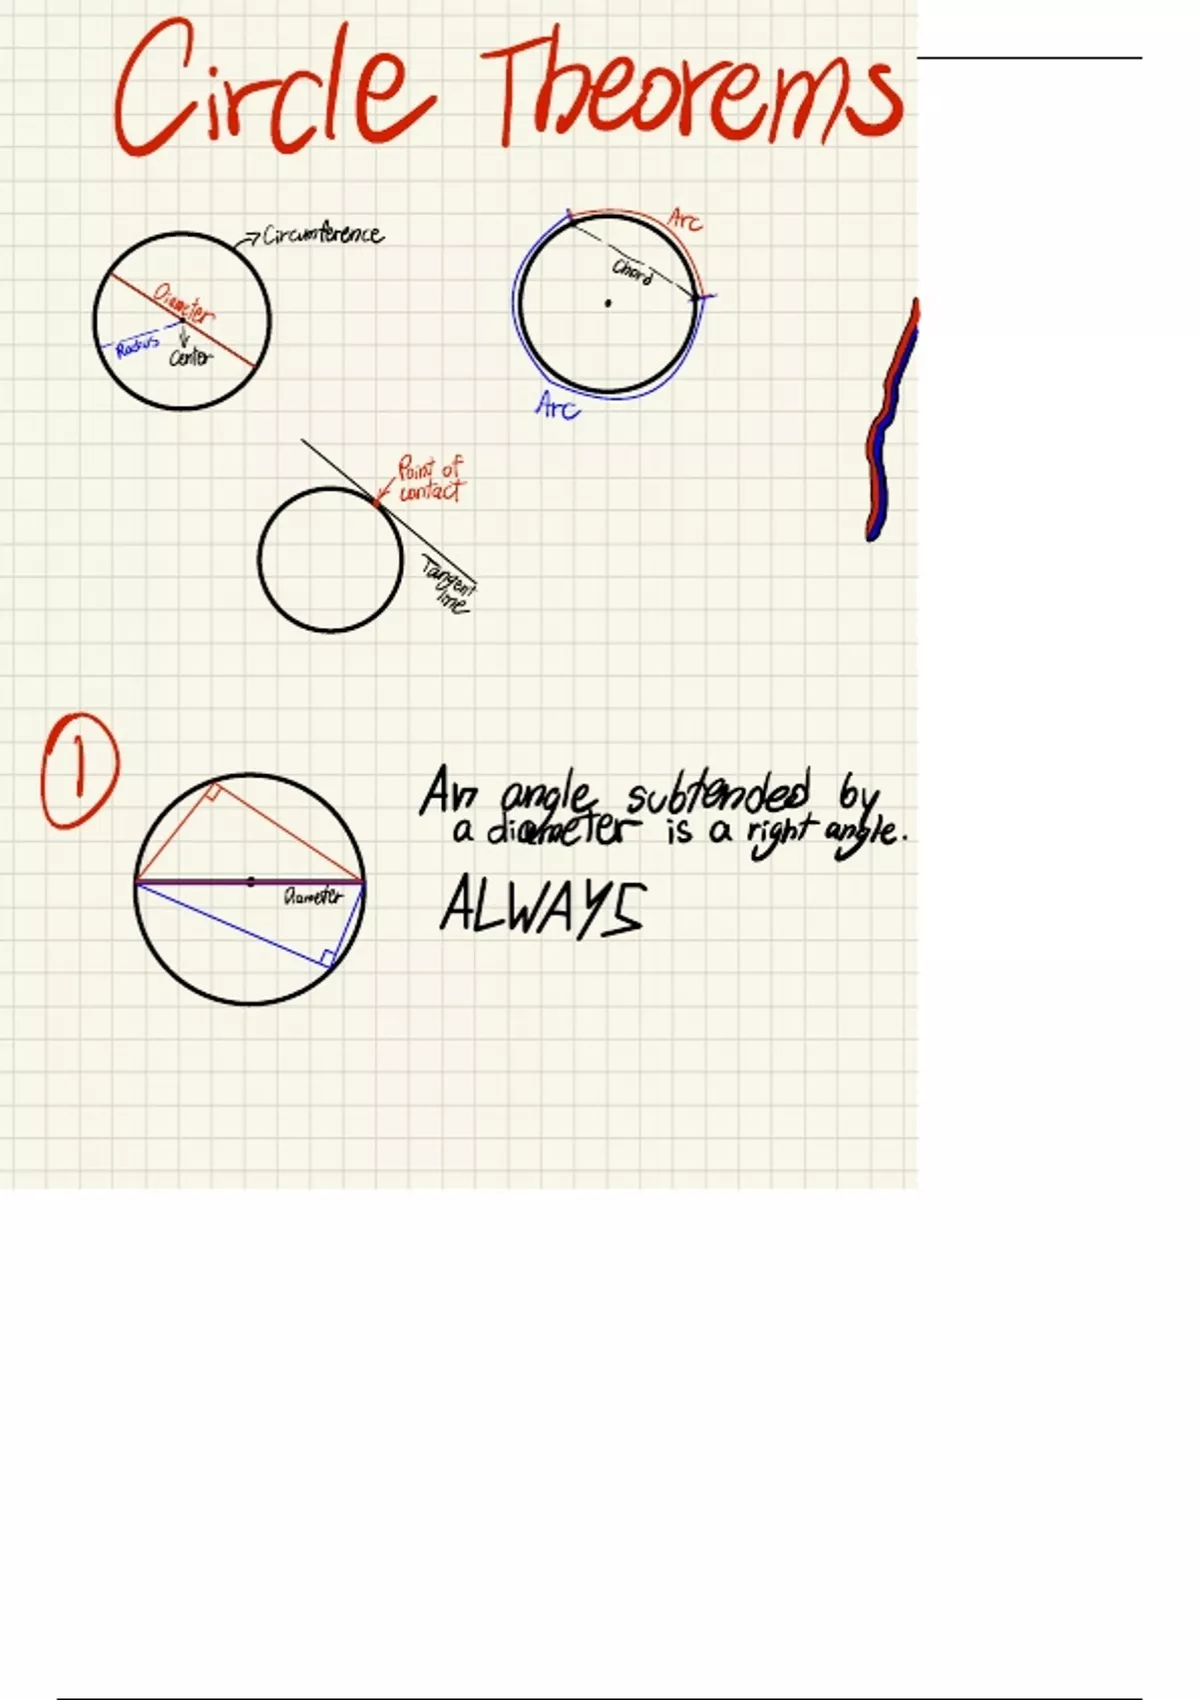 Circle Theorems
Circumference
Diameter
Radius
Center
Arc
Chord
Arc
Point of
contact
Tangent
line
1
Diameter
An angle subtended by
a diameter is a right angle.
ALWAYS